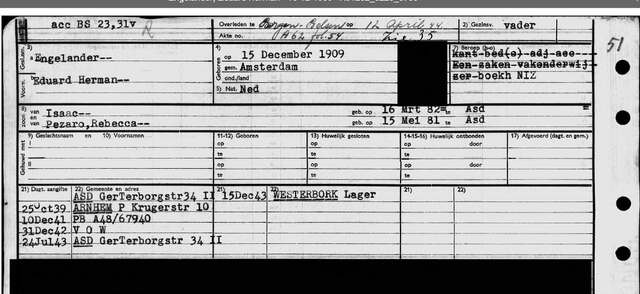 acc BS 23,31v R Overleden te Bergen-Belsen 12 April 44 3) Gezinsv. vader
Akte no. A62 fol.54. 35
51
3) a Engelander--
4) op 15 December 1909
gem. Amsterdam
7) Beroep (b-o)
kant-bed(e)-adj-acc---
Voorn. Eduard Herman--
ond./land
Een-zaken-vakonderwij-
5) Nat. Ned
zer-boekh NIZ
8) van Isaac-- geb. op 16 Mrt 82= te Asd
en van Pezaro,Rebecca-- geb. op 15 Mei 81 te Asd
9) Geslachtsnaam en 10) Voornamen 11-12) Geboren 13) Huwelijk gesloten 14-15-16) Huwelijk ontbonden 17) Afgevoerd (dagt. en gem.)
Gehuwd met
I op op op door
te te te
II op op op door
te te te
21) Dagt. aangifte 22) Gemeente en adres 21) 22) 21) 22)
ASD GerTerborgstr34 II 15Dec43 WESTERBORK Lager
25Oct39 ARNHEM P Krugerstr 10
10Dec41 PB A48/67940
31Dec42 V O W
24Jul43 ASD GerTerborgstr 34 II